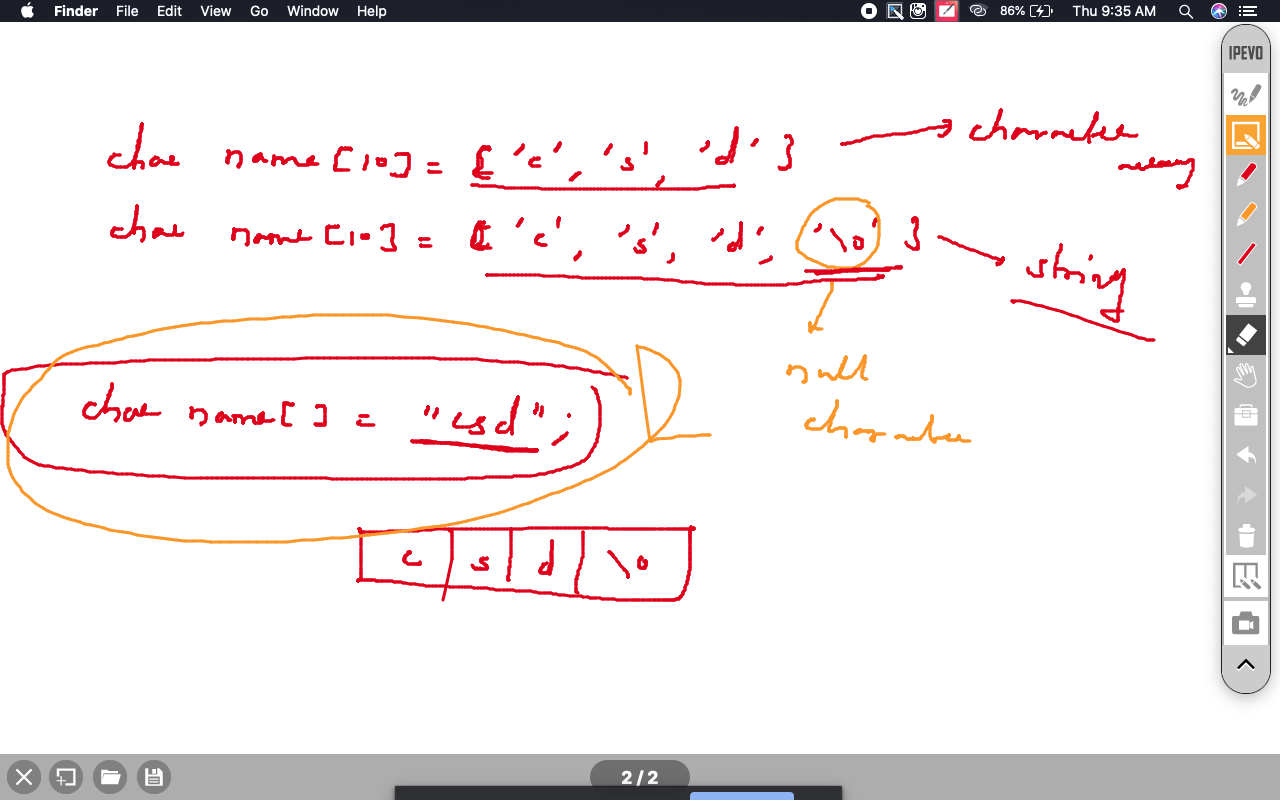 Finder File Edit View Go Window Help 86% Thu 9:35 AM
IPEVO
char name[10] = { 'c', 's', 'd' } character array
char name[10] = { 'c', 's', 'd', '\0' } string
null
character
char name[ ] = "csd";
c s d \0
2 / 2